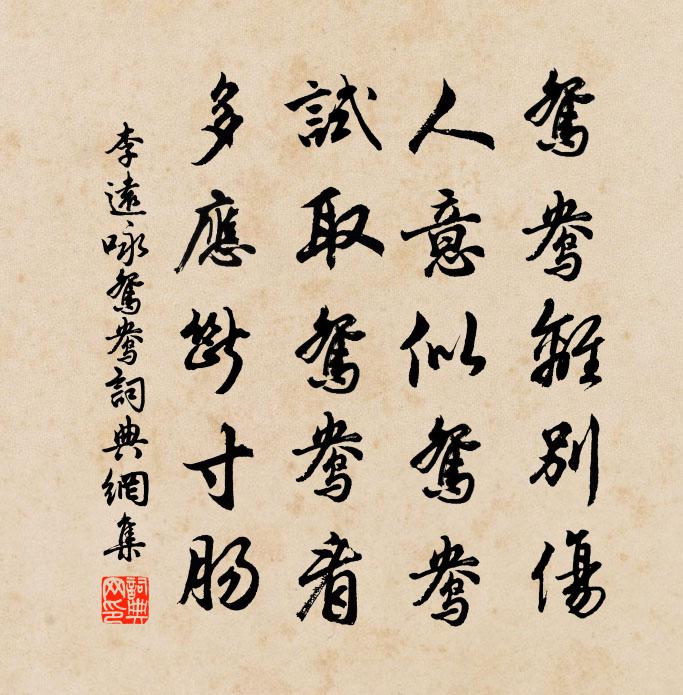 鴛鴦離別傷
人意似鴛鴦
試取鴛鴦看
多應斷寸腸
李遠咏鴛鴦詞典網集
詞典網印